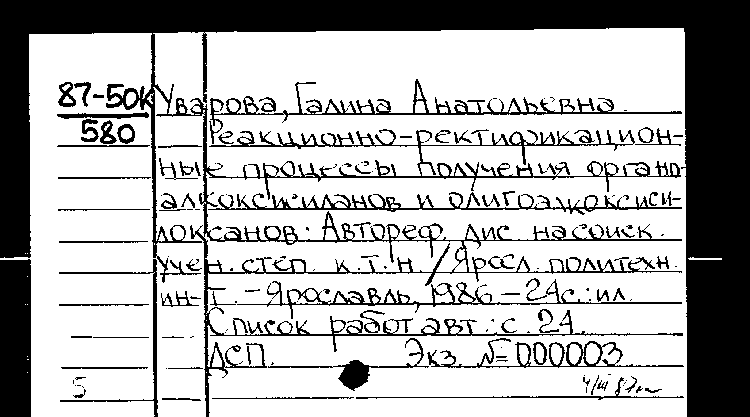 87-50К Уварова, Галина Анатольевна.
580 Реакционно-ректификацион-
ные процессы получения органо-
алкоксисиланов и олигоалкоксиси-
локсанов: Автореф. дис. на соиск.
учен. степ. к.т.н. / Яросл. политехн.
ин-т. - Ярославль, 1986. - 24с.: ил.
Список работ авт.: с. 24.
ДСП. Экз. №=000003
5